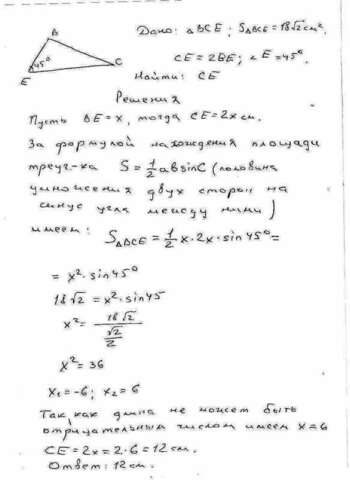 B
45°
E
C
Дано: △BCE; S△BCE = 18√2 см².
CE = 2BE; ∠E = 45°
Найти: CE
Решения
Пусть BE = x, тогда CE = 2x см.
За формулой нахождения площади
треуг-ка S = 1/2 ab sinC (половина
умножения двух сторон на
синус угла между ними)
имеем: S△BCE = 1/2 x · 2x · sin 45° =
= x² · sin 45°
18√2 = x² · sin 45
x² = 18√2 / (√2/2)
x² = 36
x₁ = -6; x₂ = 6
Так как длина не может быть
отрицательным числом имеем x = 6
CE = 2x = 2 · 6 = 12 см.
Ответ: 12 см.